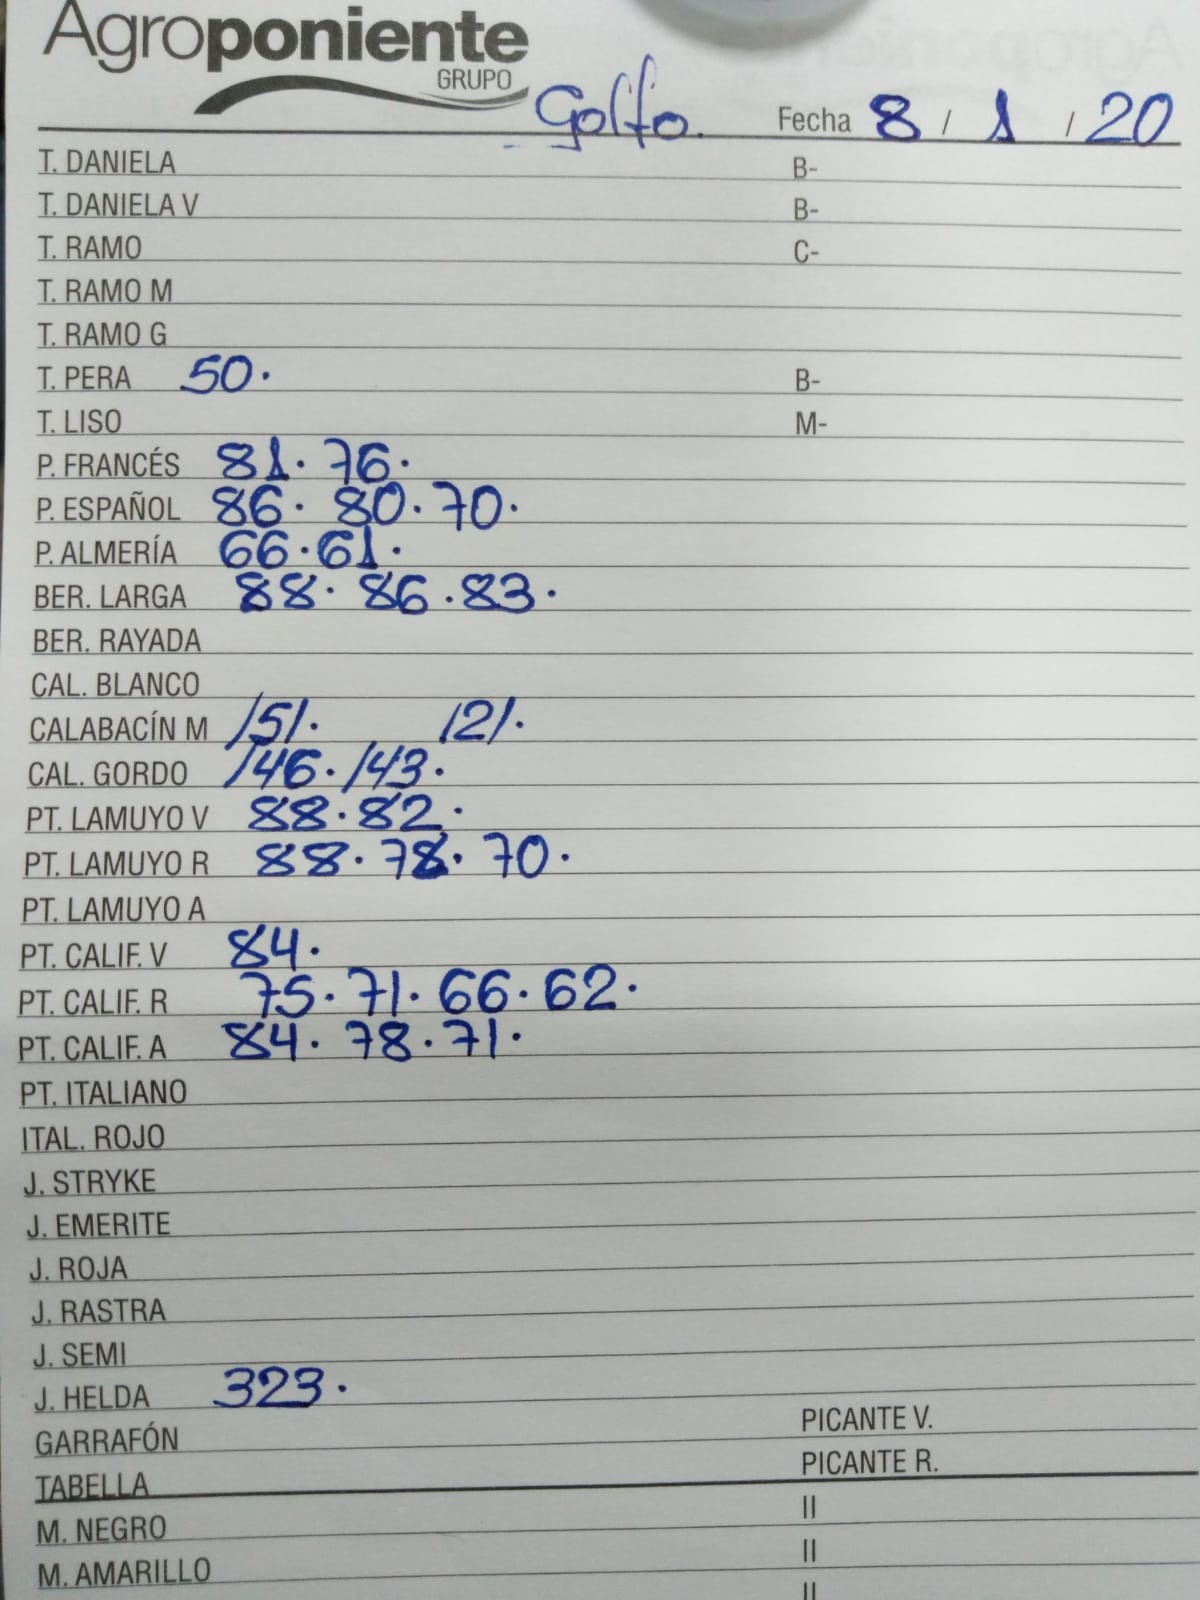 Agroponiente
GRUPO
Golfo. Fecha 8 / 1 / 20
T. DANIELA B-
T. DANIELA V B-
T. RAMO C-
T. RAMO M
T. RAMO G
T. PERA 50. B-
T. LISO M-
P. FRANCÉS 81. 76.
P. ESPAÑOL 86. 80. 70.
P. ALMERÍA 66. 61.
BER. LARGA 88. 86. 83.
BER. RAYADA
CAL. BLANCO
CALABACÍN M 151. 121.
CAL. GORDO 146. 143.
PT. LAMUYO V 88. 82.
PT. LAMUYO R 88. 78. 70.
PT. LAMUYO A
PT. CALIF. V 84.
PT. CALIF. R 75. 71. 66. 62.
PT. CALIF. A 84. 78. 71.
PT. ITALIANO
ITAL. ROJO
J. STRYKE
J. EMERITE
J. ROJA
J. RASTRA
J. SEMI
J. HELDA 323.
GARRAFÓN PICANTE V.
TABELLA PICANTE R.
M. NEGRO II
M. AMARILLO II
II